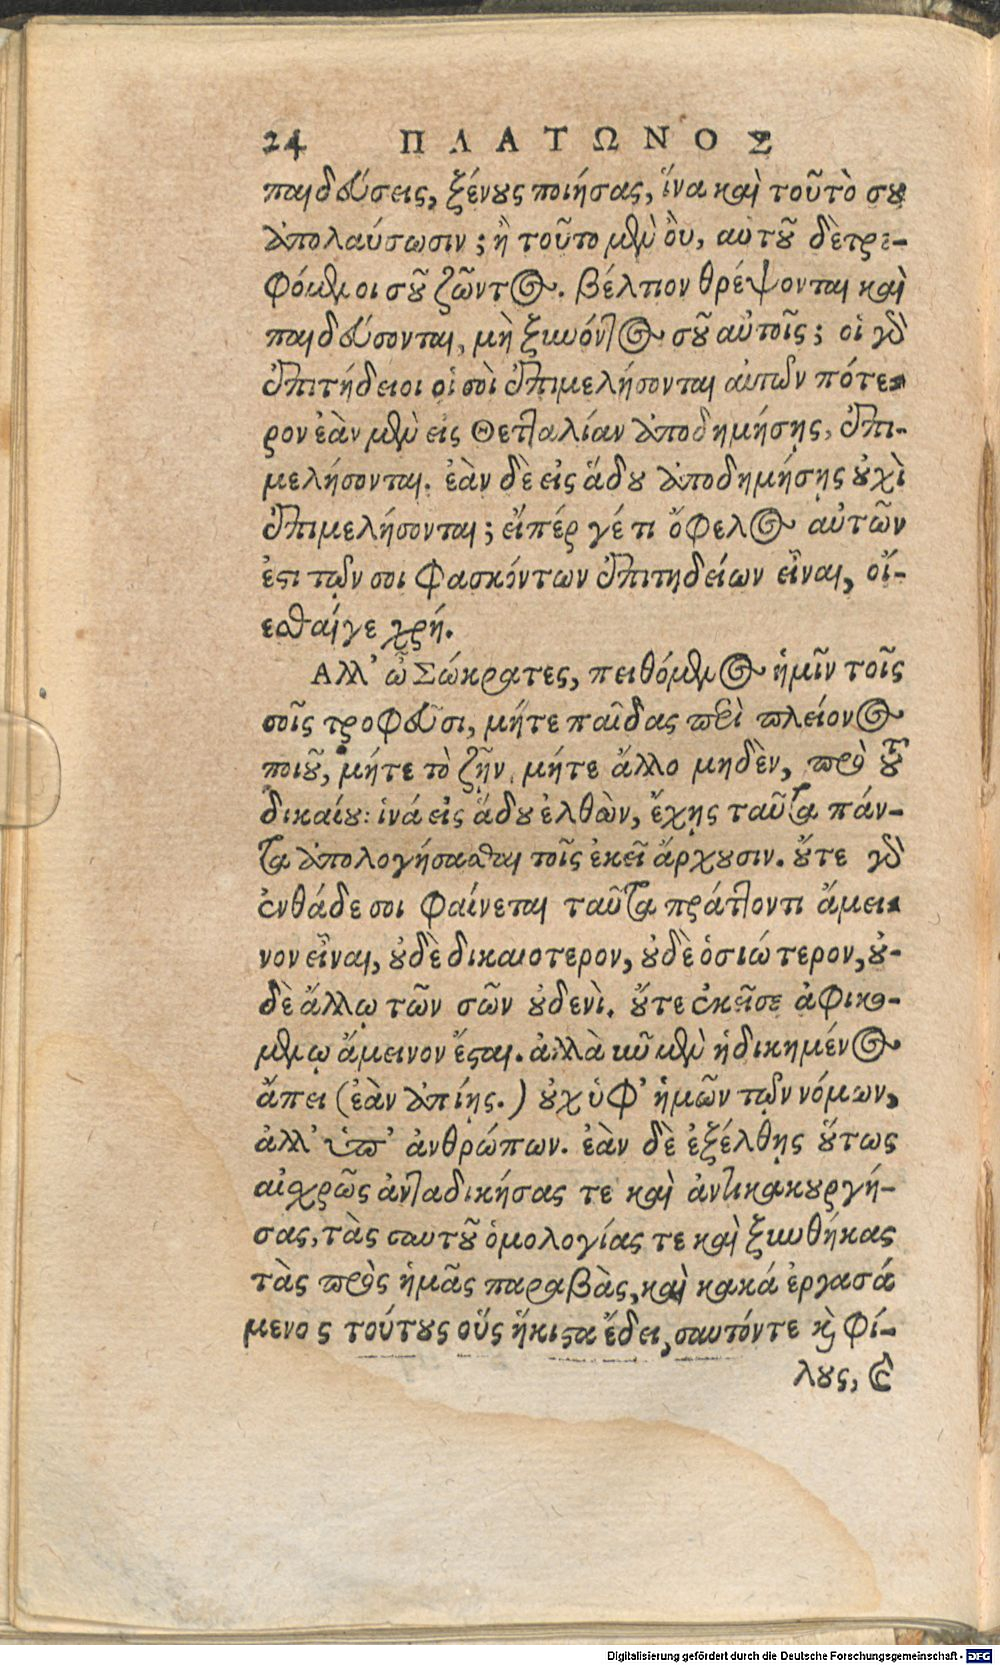 24 ΠΛΑΤΩΝΟΣ
παιδεύσεις, ξένους ποιήσας, ἵνα καὶ τοῦτό σου
ἀπολαύσωσιν; ἢ τοῦτο μὲν οὒ, αὐτοῦ δὲ τρε-
φόμενοι σοῦ ζῶντος. βέλτιον θρέψονται καὶ
παιδεύσονται, μὴ ξυνόντος σοῦ αὐτοῖς; οἱ γὰρ
ἐπιτήδειοι οἱ σοὶ ἐπιμελήσονται αὐτῶν πότε-
ρον ἐὰν μὲν εἰς Θετταλίαν ἀποδημήσῃς, ἐπι-
μελήσονται. ἐὰν δὲ εἰς ἅδου ἀποδημήσῃς οὐχὶ
ἐπιμελήσονται; εἴπέρ γέ τι ὄφελος αὐτῶν
ἐστι τῶν σοι φασκόντων ἐπιτηδείων εἶναι, οἴ-
εσθαί γε χρή.
Ἀλλ’ ὦ Σώκρατες, πειθόμενος ἡμῖν τοῖς
σοῖς τροφεῦσι, μήτε παῖδας περὶ πλείονος
ποιοῦ, μήτε τὸ ζῇν, μήτε ἄλλο μηδὲν, πρὸ τοῦ
δικαίου: ἱνά εἰς ἅδου ἐλθὼν, ἔχῃς ταῦτα πάν-
τα ἀπολογήσασθαι τοῖς ἐκεῖ ἄρχουσιν. οὔτε γὰρ
ἐνθάδε σοι φαίνεται ταῦτα πράττοντι ἄμει-
νον εἶναι, οὐδὲ δικαιοτερον, οὐδὲ ὁσιώτερον, οὐ-
δὲ ἄλλῳ τῶν σῶν οὐδενὶ. οὔτε ἐκεῖσε ἀφικο-
μένῳ ἄμεινον ἔσται. ἀλλὰ νῦν μὲν ἠδικημένος
ἄπει (ἐὰν ἀπίῃς.) οὐχ ὑφ’ ἡμῶν τῶν νόμων,
ἀλλ’ ὑπ’ ἀνθρώπων. ἐὰν δὲ ἐξέλθῃς οὕτως
αἰσχρῶς ἀνταδικήσας τε καὶ ἀντικακουργή-
σας, τὰς σαυτοῦ ὁμολογίας τε καὶ ξυνθήκας
τὰς πρὸς ἡμᾶς παραβὰς, καὶ κακά ἐργασά
μενος τούτους οὓς ἥκιστα ἔδει, σαυτόν τε καὶ φί-
λους, καὶ
Digitalisierung gefördert durch die Deutsche Forschungsgemeinschaft - DFG